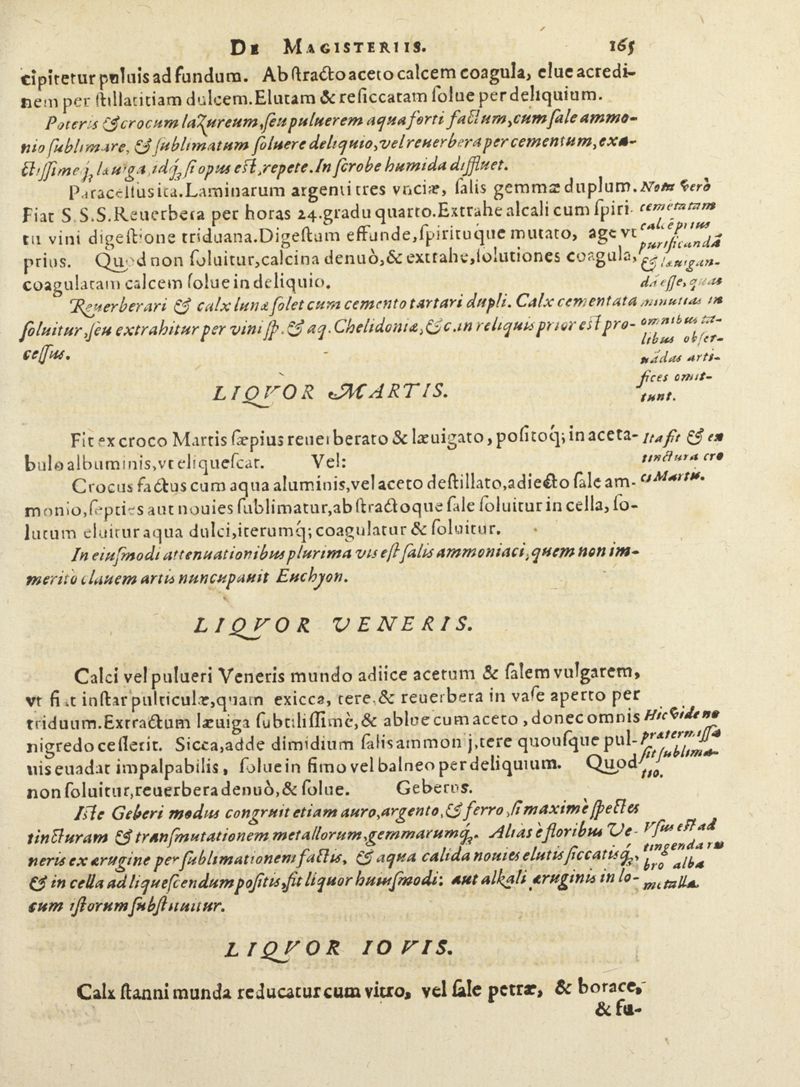 DE MAGISTERIIS. 165
cipitetur puluis ad fundum. Abstracto aceto calcem coagula, elue acredi-
nem per stillatitiam dulcem. Elutam & resiccatam solue per deliquium.
Poteris & crocum lazureum, seu puluerem aqua forti factum, cum sale ammo-
nio sublimare, & sublimatum soluere deliquio, vel reuerbera per cementum, exa-
ctissimeq́; læuiga, idq́; si opus est, repete. In scrobe humida diffluet.
Paracelsus ita. Laminarum argenti tres vnciæ, salis gemmæ duplum.
Fiat S. S. S. Reuerbera per horas 24. gradu quarto. Extrahe alcali cum spiri-
tu vini digestione triduana. Digestum effunde, spirituque mutato, age vt
prius. Quod non soluitur, calcina denuò, & extrahe, solutiones coagula,
coagulatam calcem solue in deliquio.
Reuerberari & calx lunæ solet cum cemento tartari dupli. Calx cementata
soluitur, seu extrahitur per vini sp. & aq. Chelidoniæ, &c. in reliquis prior est pro-
cessus.
Nota verò
cementatam
calce prius
purificandā
& læuigan-
dā esse, quas
minutias in
omnibus ta-
libus obser-
uādas arti-
fices omit-
tunt.
LIQVOR MARTIS.
Fit ex croco Martis sæpius reuerberato & læuigato, positoq́; in aceta-
bulo albuminis, vt eliquescat. Vel:
Crocus factus cum aqua aluminis, vel aceto destillato, adiecto sale am-
monio, septies aut nouies sublimatur, abstractoque sale soluitur in cella, so-
lutum eluitur aqua dulci, iterumq́; coagulatur & soluitur.
Ita fit & ex
tinctura cro
ci Martis.
In eiusmodi attenuationibus plurima vis est salis ammoniaci, quem non im-
merito clauem artis nuncupauit Euchyon.
LIQVOR VENERIS.
Calci vel pulueri Veneris mundo adiice acetum & salem vulgarem,
vt fiat instar pulticulæ, quam exicca, tere, & reuerbera in vase aperto per
triduum. Extractum læuiga subtilissimè, & ablue cum aceto, donec omnis
nigredo cesserit. Sicca, adde dimidium salis ammonij, tere quousque pul-
uis euadat impalpabilis, solue in fimo vel balneo per deliquium. Quod
non soluitur, reuerbera denuò, & solue. Geberus.
Hic vide ne
prætermissa
sit sublima-
tio.
Iste Geberi modus congruit etiam auro, argento, & ferro, si maximè spectes
tincturam & transmutationem metallorum, gemmarumq́;. Aliàs è floribus Ve-
neris ex ærugine per sublimationem factis, & aqua calida nouies elutis siccatisq́;,
& in cella ad liquescendum positis, fit liquor huiusmodi: aut alkali æruginis in lo-
cum istorum substituitur.
Vsus est ad
tingenda ru
bro alba
metalla.
LIQVOR IOVIS.
Calx stanni munda reducatur cum vitro, vel sale petræ, & borace,
& fu-